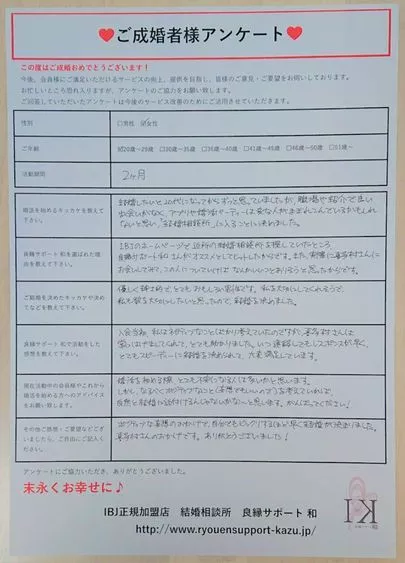 ♥ご成婚者様アンケート♥
この度はご成婚おめでとうございます！
今後、会員様にご満足いただけるサービスの向上、提供を目指し、皆様のご意見・ご要望をお伺いしております。
お忙しいところ恐れ入りますが、アンケートのご協力をお願い致します。
ご回答していただいたアンケートは今後のサービス改善のためにご活用させていただきます。
性別 □男性 ☑女性
ご年齢 ☑20歳～29歳 □30歳～35歳 □36歳～40歳 □41歳～45歳 □46歳～50歳 □51歳～
活動期間 2ヶ月
婚活を始めるキッカケを教えて
下さい。
結婚したいと20代になってからずっと思っていましたが、職場や紹介で良い
出会いがなく、アプリや婚活パーティーは変な人がまぎれこんでいるかもしれ
ないと思い、結婚相談所に入ることに決めました。
良縁サポート和を選ばれた理
由を教えて下さい。
IBJのホームページで近所の結婚相談所を探していたところ
良縁サポート和さんがオススメとしてヒットしたからです。また、実際に
お会いしてみて、この人についていけばなんかいいことありそうと思ったからです。
ご結婚を決めたキッカケや決め
てなどを教えて下さい。
優しく紳士的で、とてもおもしろい影ほうです。私を大切にしてくれそうで、
私も彼を大切にしたいと思ったので、結婚を決めました。
良縁サポート和で活動をした
感想を教えて下さい。
入会当初、私はネガティブなことばかり考えていたのですが、
笑いとばしてくれて、とても助かりました。いつ連絡してもレスポンスが早く、
とてもスピーディーに結婚を決められて、大変満足しています。
現在活動中の会員様やこれから
婚活を始める方へのアドバイス
をお願い致します。
婚活を始める際、とても不安になる人は多いかと思います。
しかし、なるべくポジティブなこと(妄想でもいいので)を考えていれば、
自然と結婚に近付けるんじゃないかな〜と思います。がんばってください！
その他ご感想・ご要望などござ
いましたら、ご自由にご記入く
ださい。
ポジティブな妄想のおかげで、自分でもビックリするほど早く結婚が決まりました。
さんのおかげです。ありがとうございました！
アンケートにご協力いただき、ありがとうございました。
末永くお幸せに♪
IBJ正規加盟店 結婚相談所 良縁サポート 和
http://www.ryouensupport-kazu.jp/